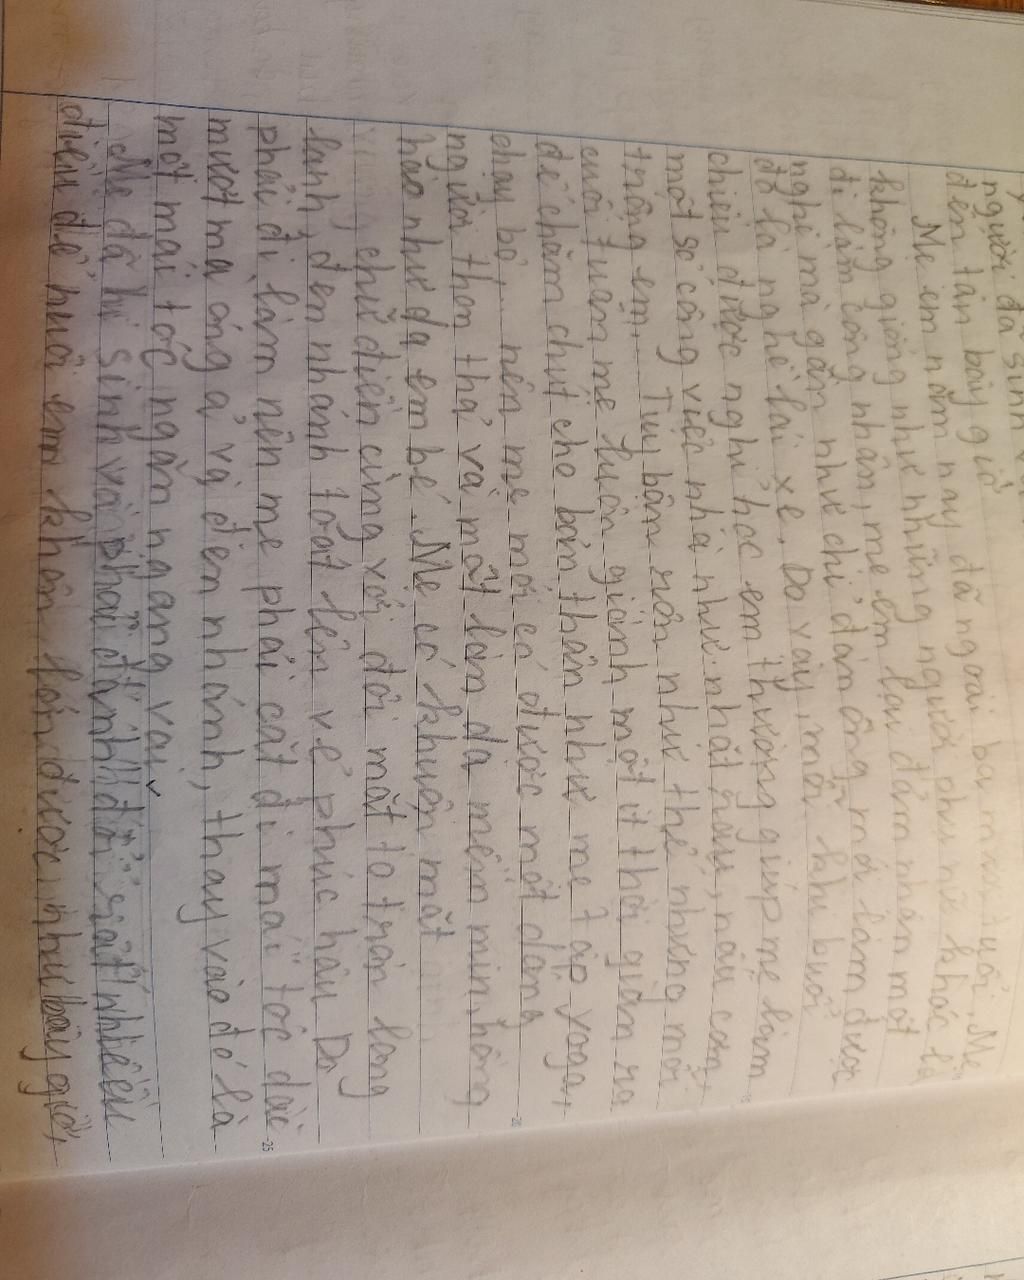 người đã sinh
đến tận bây giờ
Mẹ em năm nay đã ngoài ba mươi tuổi. Mẹ
không giống như những người phụ nữ khác là
đi làm công nhân, mẹ em lại đảm nhận một
nghề mà gần như chỉ đàn ông mới làm được
đó là nghề lái xe. Do vậy, mỗi khi buổi
chiều được nghỉ học em thường giúp mẹ làm
một số công việc nhà như: nhặt rau, nấu cơm,
trông em,... Tuy bận rộn như thế nhưng mỗi
cuối tuần mẹ luôn giành một ít thời gian ra
để chăm chút cho bản thân như mẹ tập yoga,
chạy bộ,... nên mẹ mới có được một dáng
người thon thả và một làn da mềm mịn, hồng
hào như da em bé. Mẹ có khuôn mặt
chữ điền cùng với đôi mắt to tròn long
lanh, đen nhánh toát lên vẻ phúc hậu. Do
phải đi làm nên mẹ phải cắt đi mái tóc dài
mượt mà óng ả và đen nhánh, thay vào đó là
một mái tóc ngắn ngang vai.
Mẹ đã hi sinh và phải đánh đổi rất nhiều
điều để nuôi em khôn lớn được như bây giờ,